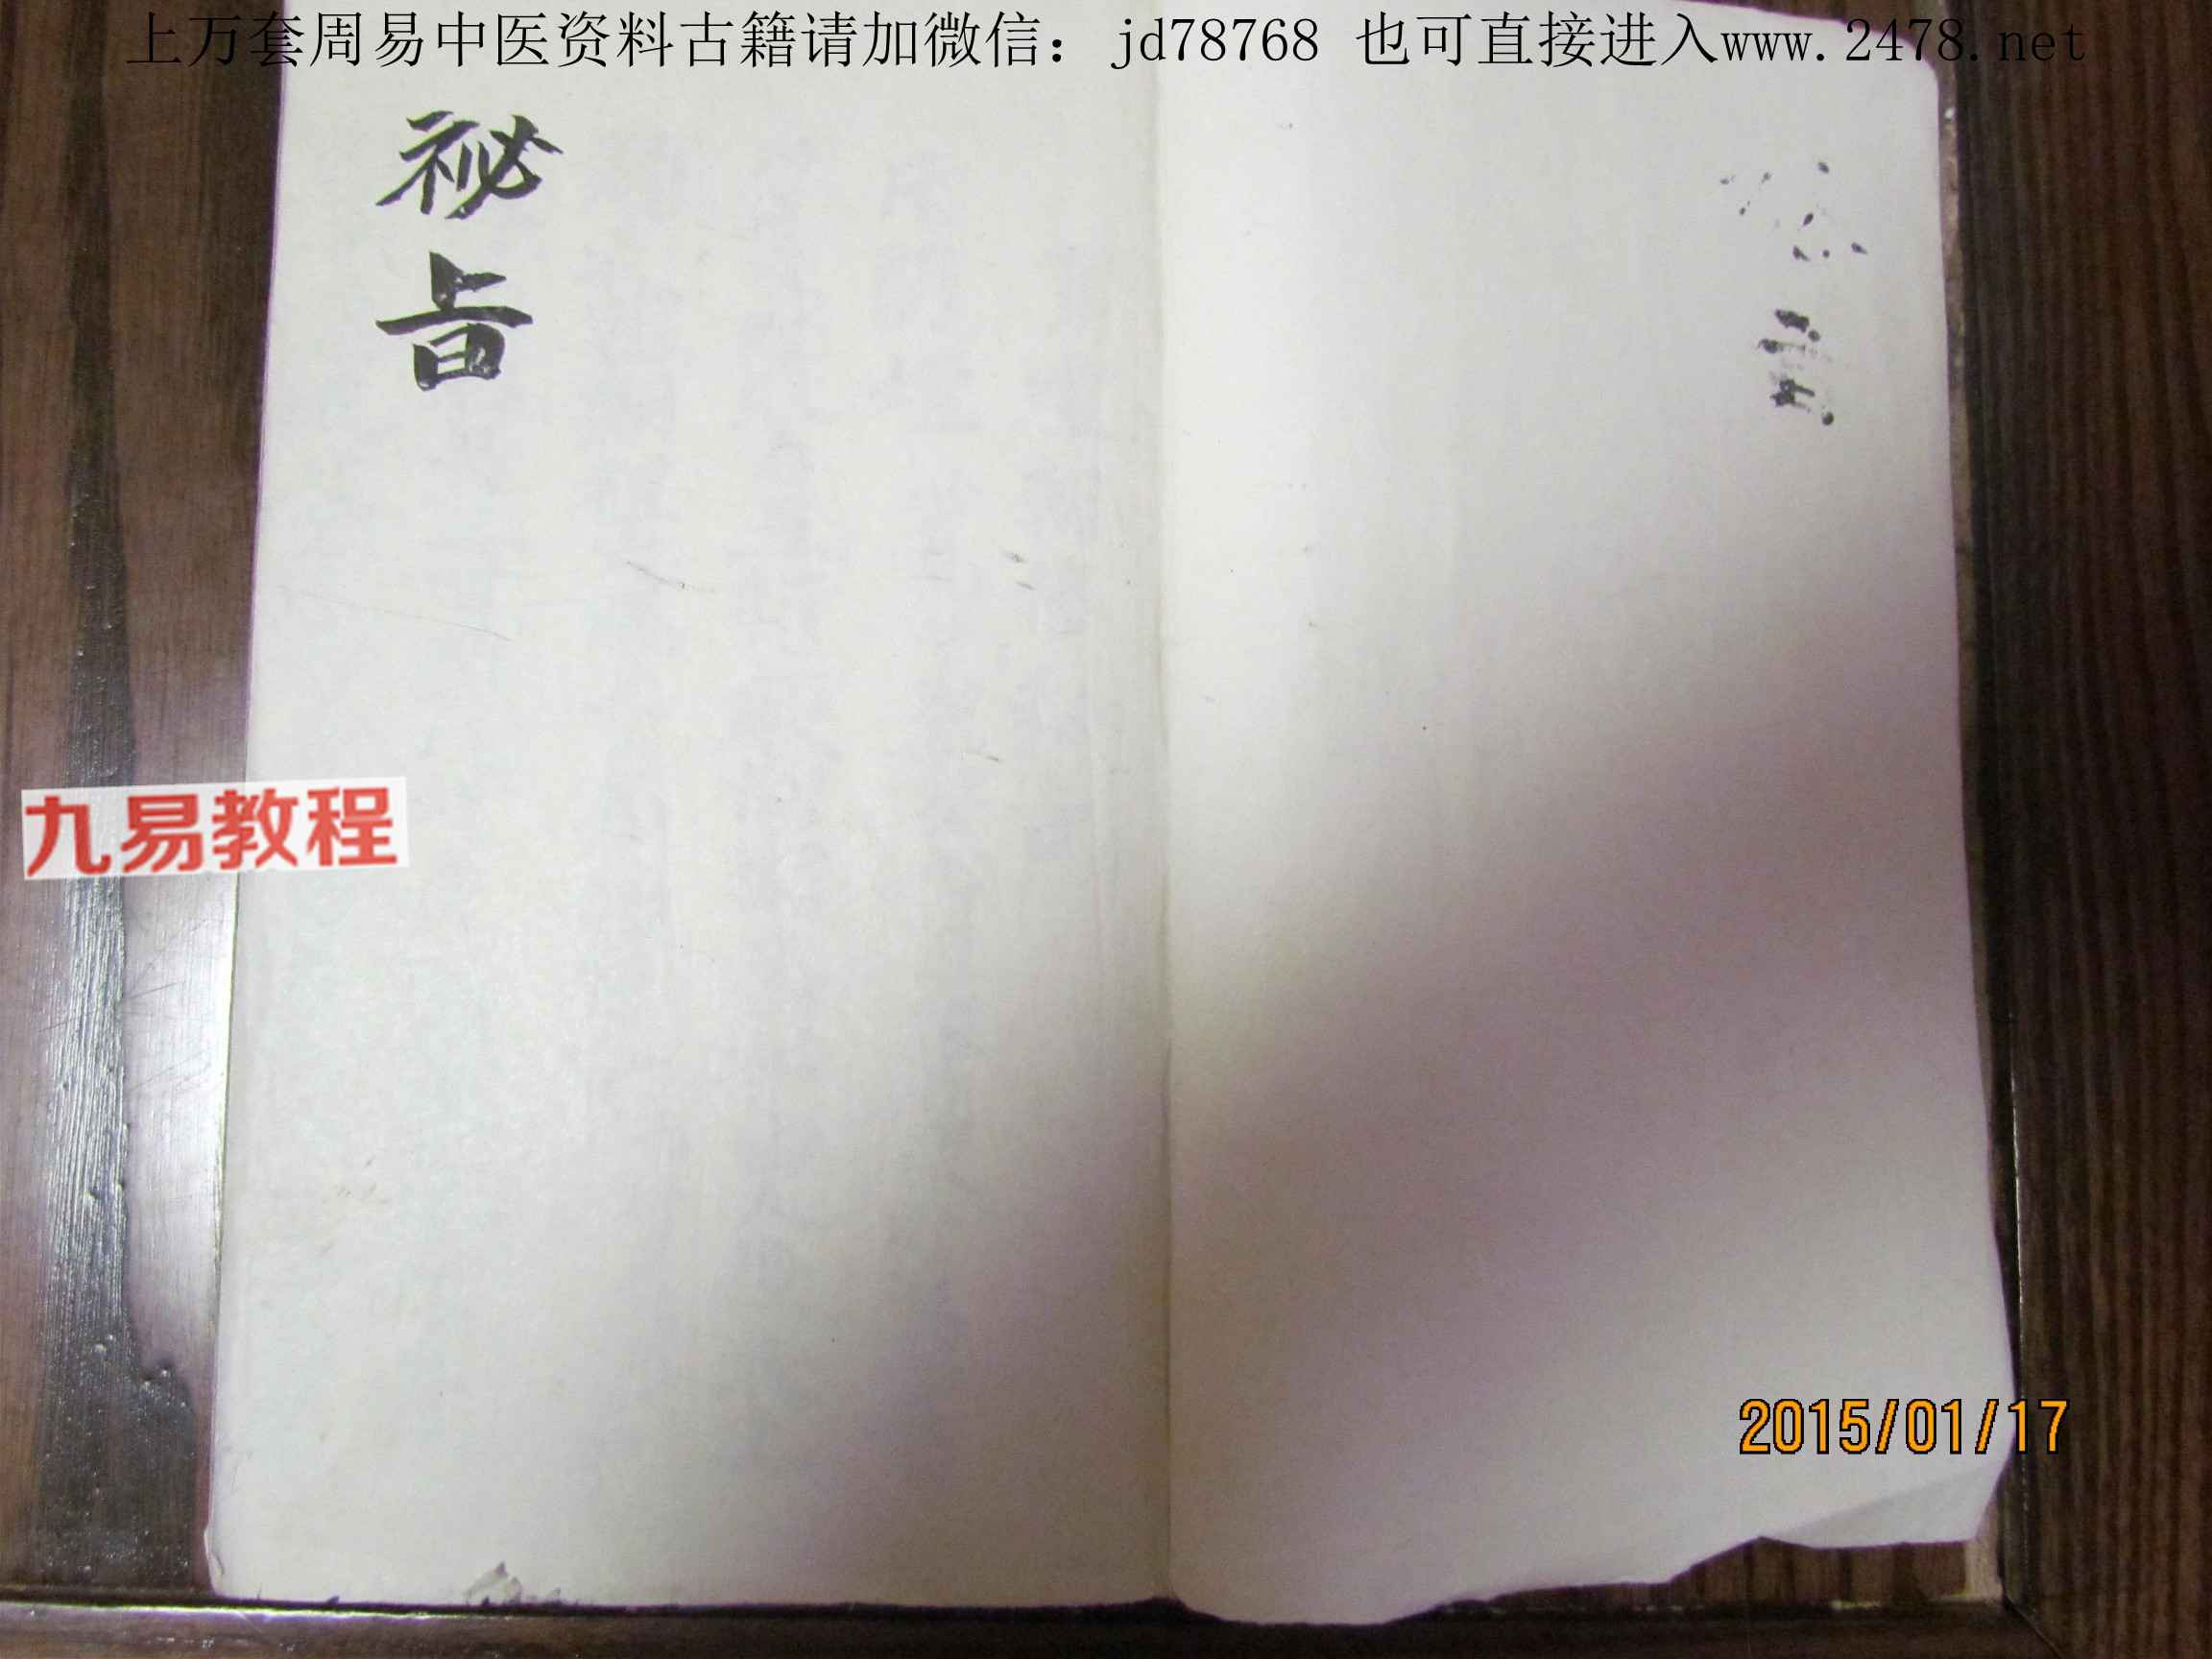 上万套周易中医资料古籍请加微信：jd78768 也可直接进入www.2478.net
祕
旨
九易教程
2015/01/17